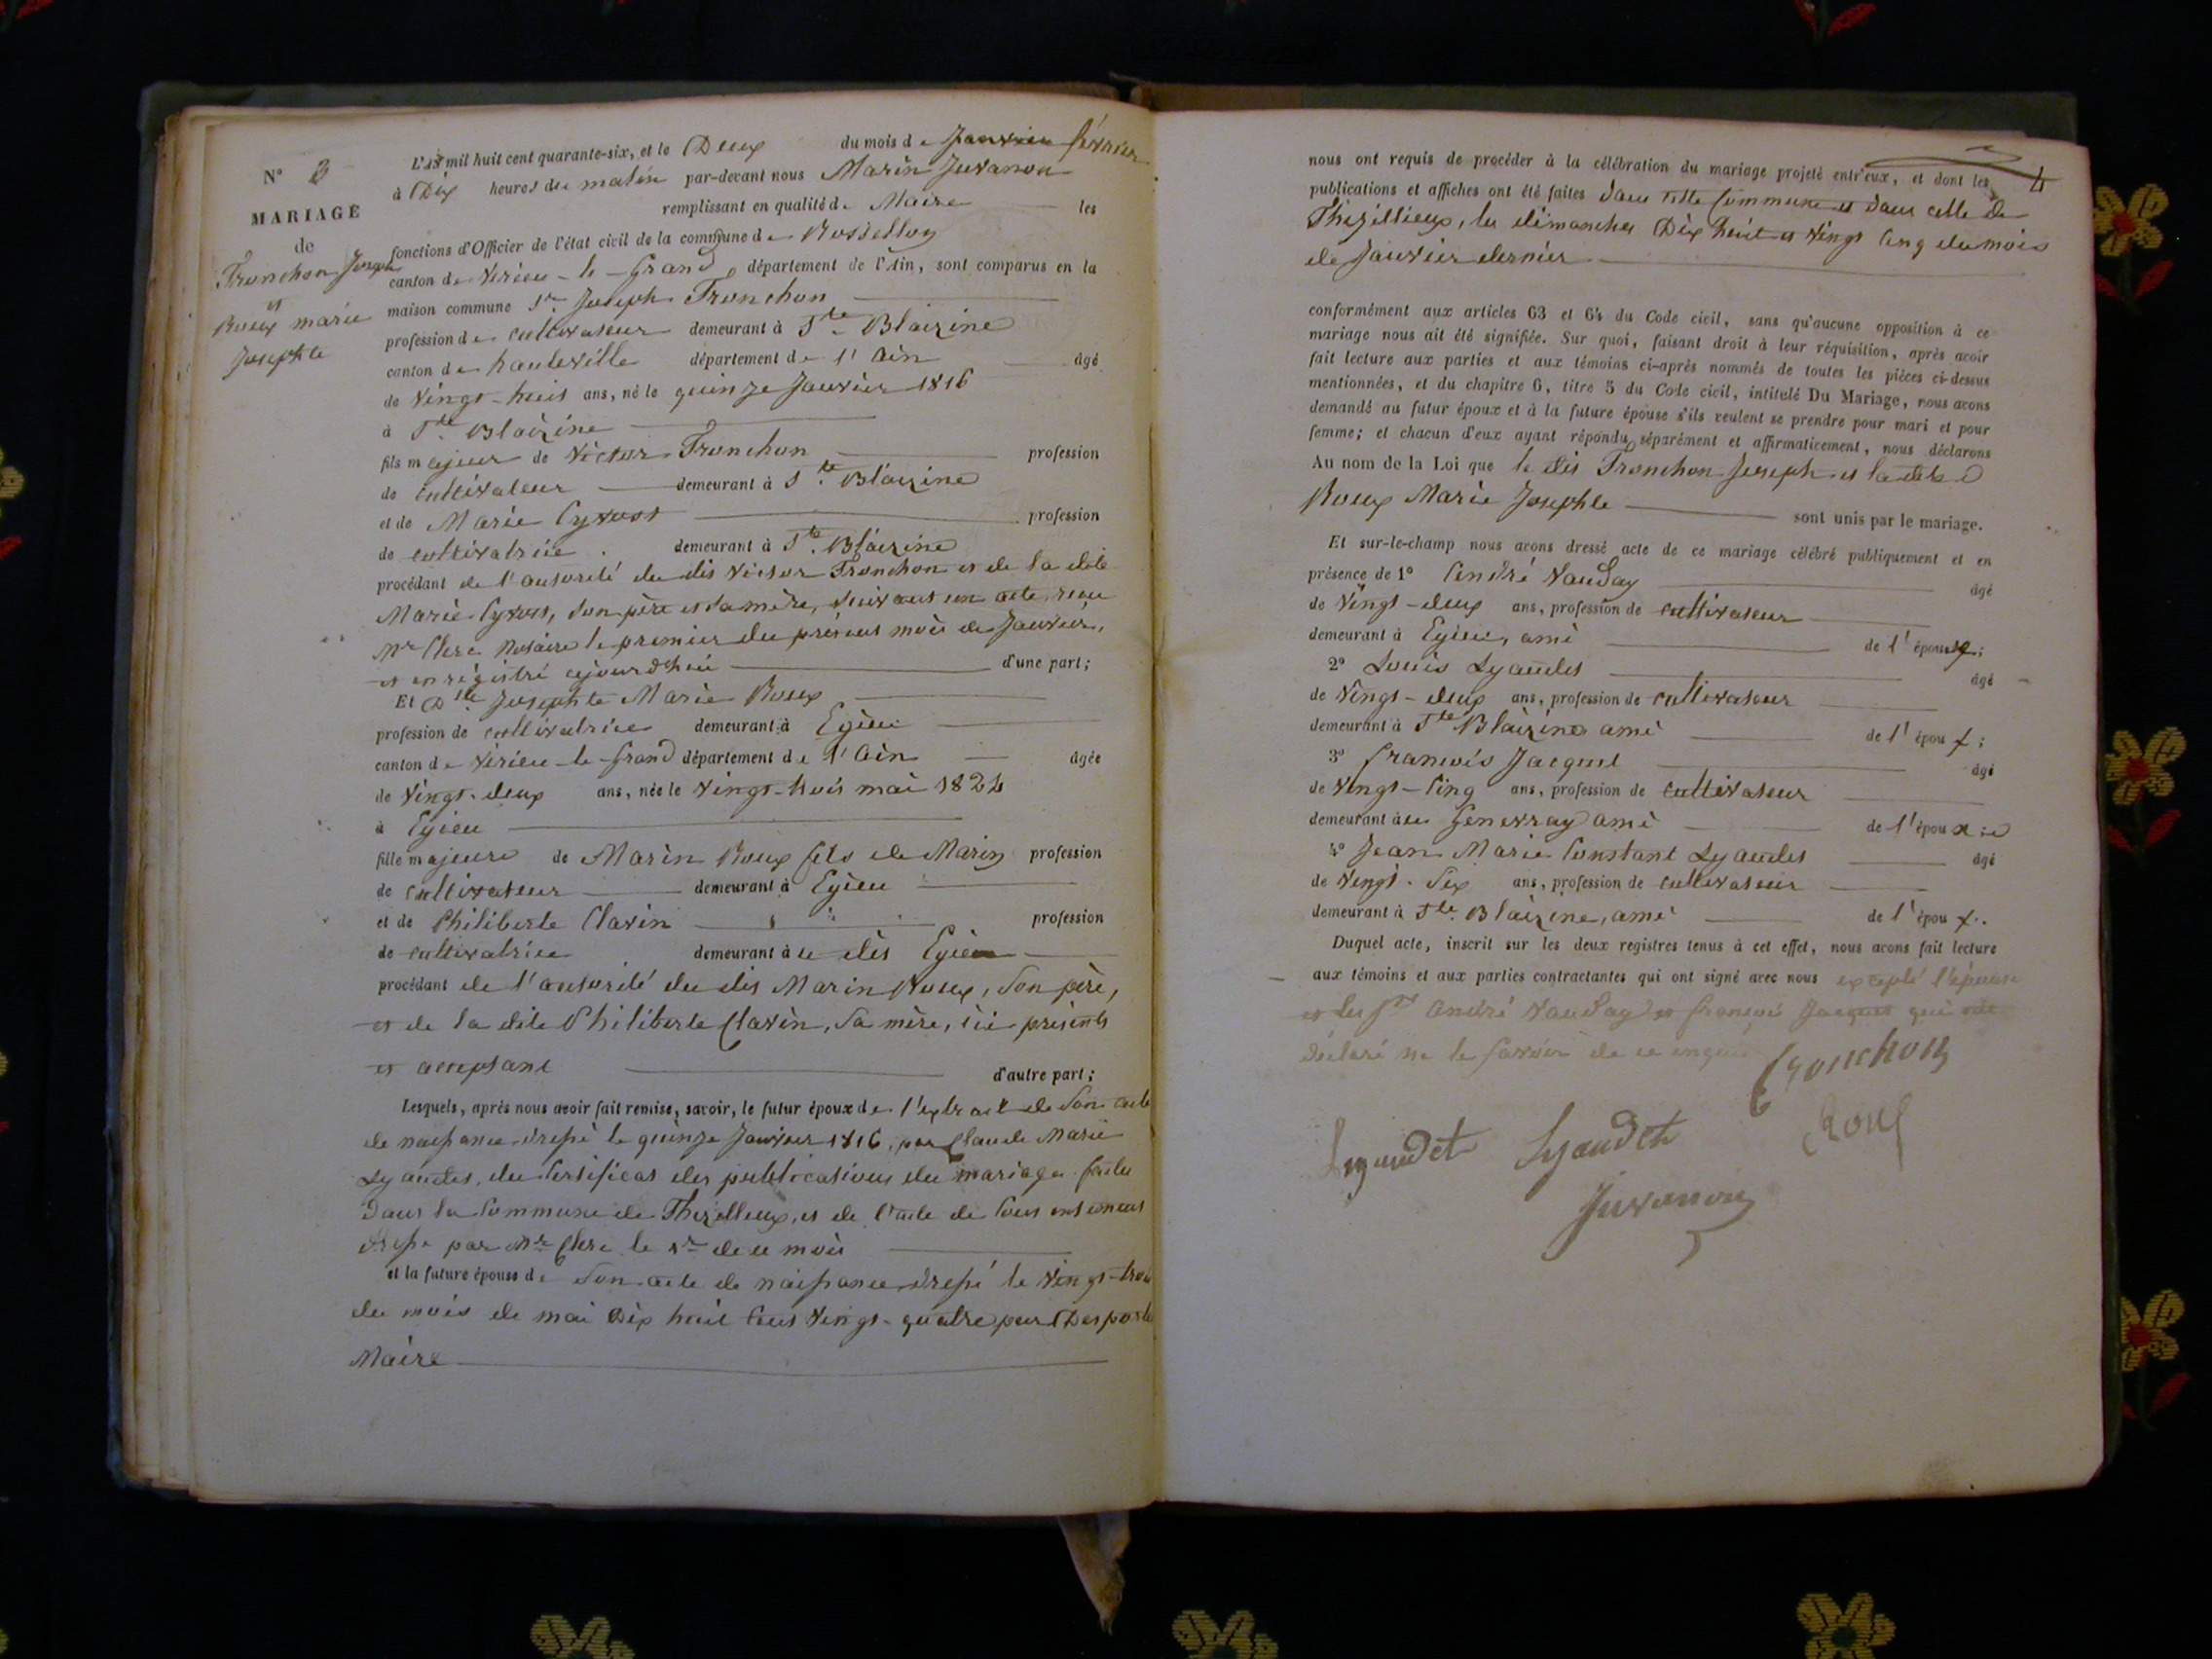 N° 3
MARIAGE
de
Tronchon Joseph
et
Roux marie
Josephte
L'AN mil huit cent quarante-six, et le Deux du mois de Janvier février
à Dix heures du matin par-devant nous Marin Juvanon
remplissant en qualité de Maire les
fonctions d'Officier de l'état civil de la commune de Rossillon
canton de Virieu-le-Grand, département de l'Ain, sont comparus en la
maison commune Sr Joseph Tronchon
profession de cultivateur demeurant à Ste Blaizine
canton de hauteville département de l'Ain âgé
de Vingt-huit ans, né le quinze Janvier 1816
à Ste Blaizine
fils majeur de Victor Tronchon profession
de cultivateur demeurant à Ste Blaizine
et de Marie Cyvost profession
de cultivatrice demeurant à Ste Blaizine
procédant de l'autorité du dit Victor Tronchon et de la dite
Marie Cyvost, son père et sa mère, suivant un acte reçu
Mre Clerc Notaire le premier du présent mois de Janvier,
et enrégistré aujourd'hui d'une part;
Et Dlle Josephte Marie Roux
profession de cultivatrice demeurant à Egieu
canton de Virieu-le-Grand département de l'Ain âgée
de Vingt-deux ans, née le vingt-trois mai 1824
à Egieu
fille majeure de Marin Roux fils de Marin profession
de cultivateur demeurant à Egieu
et de Philiberte Clavin profession
de cultivatrice demeurant à ce dit Egieu
procédant de l'autorité du dit Marin Roux, son père,
et de la dite Philiberte Clavin, sa mère, ici présents
et acceptant d'autre part;
Lesquels, après nous avoir fait remise, savoir, le futur époux de l'extrait de son acte
de naissance dressé le quinze Janvier 1816, par Claude Marie
Lyaudet, du Certificat des publications du mariage faites
dans la Commune de Thezillieux, et de l'acte de Consentement
dressé par Mre Clerc le 1er de ce mois
et la future épouse de son acte de naissance dressé le vingt-trois
du mois de mai Dix huit cent vingt-quatre par Desporte
Maire
4
nous ont requis de procéder à la célébration du mariage projeté entr'eux, et dont les
publications et affiches ont été faites dans cette Commune et dans celle de
Thézillieux, les dimanches Dix huit et vingt cinq du mois
de Janvier dernier
conformément aux articles 63 et 64 du Code civil, sans qu'aucune opposition à ce
mariage nous ait été signifiée. Sur quoi, faisant droit à leur réquisition, après avoir
fait lecture aux parties et aux témoins ci-après nommés de toutes les pièces ci-dessus
mentionnées, et du chapitre 6, titre 5 du Code civil, intitulé Du Mariage, nous avons
demandé au futur époux et à la future épouse s'ils veulent se prendre pour mari et pour
femme; et chacun d'eux ayant répondu séparément et affirmativement, nous déclarons
Au nom de la Loi que le dit Tronchon Joseph et la dite
Roux Marie Josephte sont unis par le mariage.
Et sur-le-champ nous avons dressé acte de ce mariage célébré publiquement et en
présence de 1° André Vauday âgé
de Vingt-deux ans, profession de cultivateur
demeurant à Egieu, ami de l'épouse;
2° Louis Lyaudet âgé
de Vingt-deux ans, profession de cultivateur
demeurant à Ste Blaizine ami de l'époux;
3° françois Jacquet âgé
de vingt-cinq ans, profession de cultivateur
demeurant à Genevray ami de l'époux
4° Jean Marie Constant Lyaudet âgé
de Vingt-six ans, profession de cultivateur
demeurant à Ste Blaizine, ami de l'époux.
Duquel acte, inscrit sur les deux registres tenus à cet effet, nous avons fait lecture
aux témoins et aux parties contractantes qui ont signé avec nous excepté l'épouse
et les Srs André Vauday et françois Jacquet qui ont
déclaré ne le savoir de ce enquis
Tronchon
Lyaudet Lyaudet Roux
Juvanon